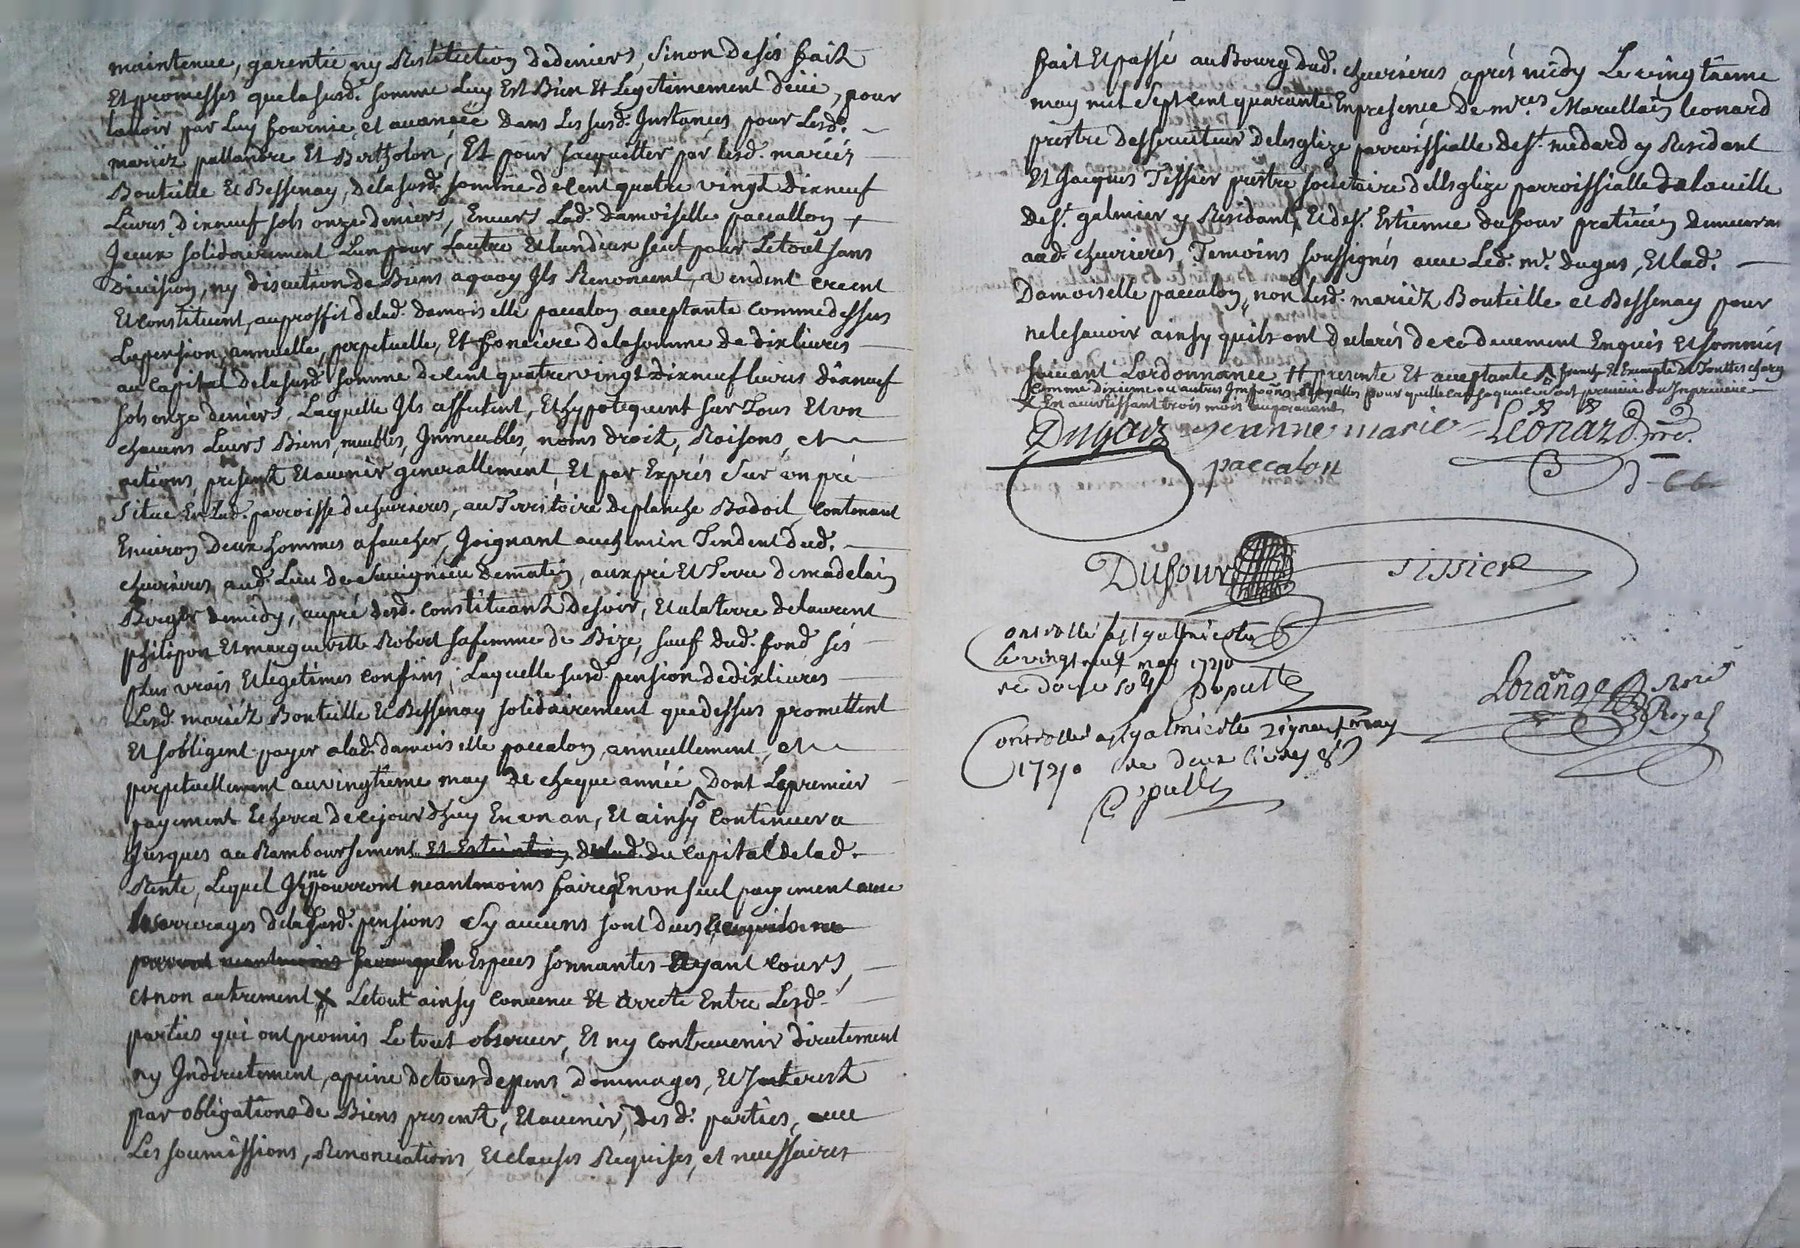 maintenue, garentie ny Restitution dedeniers, Sinon desés fait
Et promesses quelasusd. somme Luy Est Bien Et Legitimement deüe, pour
lavoir par Luy fournie et avancée dans Les susd. Instances pour Lesd.
mariéz pallandre Et Bertholon, Et pour sacquitter par lesd. mariéz
Bouteille Et Bessenay, delasusd. somme de Cent quatre vingt dixneuf
Livres dixneuf sols onze deniers, Envers Lad. damoiselle paccallon
Iceux solidairement Lun pour Lautre Et lundeux seul pour Letout sans
Division, ny discution de Biens aquoy Ils Renoncent, vendent créent
Et constituent, auproffit delad. damoiselle paccalon acceptante commedessus
Lapension, annuelle, perpetuelle, Et fonciere delasomme de dixlivres
au capital delasusd. somme decent quatrevingt dixneuf livres dixneuf
sols onze deniers, Laquelle Ils affectent, Et hypotequent sur Tous Et un
chacuns Leurs Biens, meubles, Immeubles, noms droit, Raisons, et
actions, present Et avenir generallement, Et par Exprés Sur un pré
situé En Lad. parroisse de chevrieres, au Territoire deplanche Badoil, contenant
Environ Deux hommes afaucher, Joignant auchemin Tendent dud.
chevrieres aud. Lieu de Savignieu dematin, aux pré Et Terre demadelain
Berger demidy, au pré desd. constituant desoir, Et alaterre de laurent
philipon Et margueritte Robert safemme de Bize, sauf dud. fond sés
plus vrais Et legetimes confins; Laquelle susd. pension dedixlivres
Lesd. mariéz Bouteille Et Bessenay solidairement quedessus promettent
Et sobligent payer alad. damoiselle paccalon annuellement, et
perpetuellement auvingtieme may de chaque année, dont Lepremier
payement Echerra decejourdhuy En un an, Et ainsy continuera
Jusques au Remboursement Et Extinction delad. du capital delad.
Rente, Lequel Ils ne pourront neantmoins faire qEn un seul payement avec
les arrerages delasusd. pensions Sy aucuns sont dues
pourront neantmoins faire quEn Especes sonnantes Ayant cours,
Et non autrement X Letout ainsy convenu Et arreté Entre Lesd.
parties qui ont promis Le tout observer, Et ny contrevenir directement
ny Indirectement, apeine detous depens Dommages, Et Interest
par obligations de Biens present, Et avenir, desd. parties, avec
Les soumissions, Renonciations, Et clauses Requises, et necessaires
fait Et passé au Bourg dud. chevrieres aprés midy Le vingtieme
may mil sept cent quarante En presence de mres. Marcellain leonard
prestre desserviteur delesglize parroissialle de st. medard y Residant
Et Jacques Tissier prestre societaire dellesglize parroissialle delaville
de st. galmier y Residant, Et de sr. Ettienne dufour praticien demeurant
aud. chevrieres, Temoins soussignés avec Led. mr. dugas, Et lad.
Damoiselle paccalon, non Lesd. mariéz Bouteille et Bessenay pour
ne le savoir ainsy quils ont declarés de ce deuement Enquis et sommés
suivant Lordonnance # presente Et acceptante franche Et Exempte de Touttes charges
comme dixieme ou autres Impositions Royalles pour quelle cause que ce soit preveüe ou Inpreveüe
X En avertissant trois mois auparavant
Dugas Jeanne marie Léonard pre.
paccalon
Dufour Tissier
Controllé a st galmier le
le vingt neuf may 1740
re douze sols Depulle
Controllé a st galmier le 29 may
1740 re deux livres 8s
Depulle
Lorange Nore
Royal